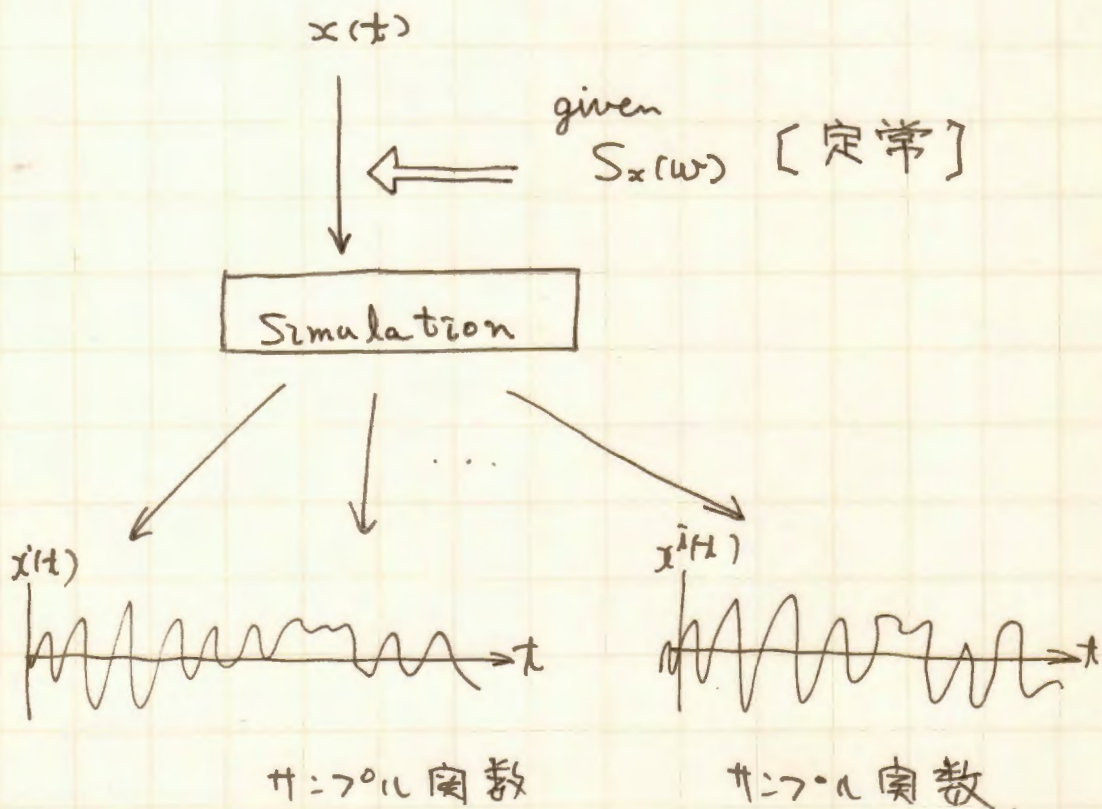 x(t)
given
Sx(ω) [定常]
Simulation
...
x¹(t)
t
xⁱ(t)
t
サンプル関数
サンプル関数